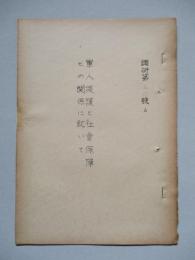 調研第二號
軍人援護と社會保障
との関係に就いて